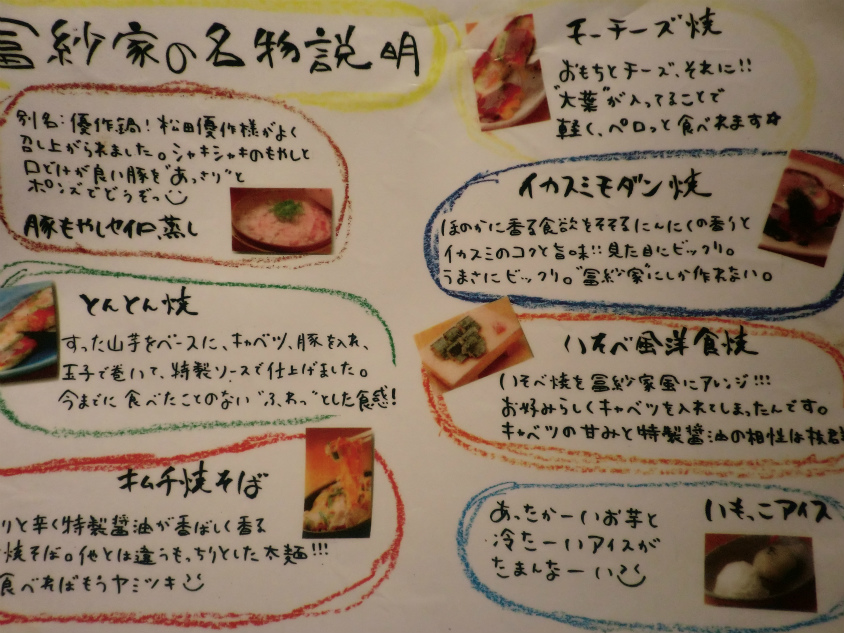 冨紗家の名物説明
別名：優作鍋！松田優作様がよく
召し上がられました。シャキシャキのもやしと
口どけが良い豚を"あっさり"と
ポンズでどうぞっ
豚もやしセイロ蒸し
とんとん焼
すった山芋をベースに、キャベツ、豚を入れ、
玉子で巻いて、特製ソースで仕上げました。
今までに食べたことのない"ふわっ"とした食感！
キムチ焼そば
リと辛く特製醤油が香ばしく香る
焼そば。他とは違うもっちりとした太麺!!!
食べればもうヤミツキ
モーチーズ焼
おもちとチーズ、それに!!
"大葉"が入ってることで
軽く、ペロっと食べれます☆
イカスミモダン焼
ほのかに香る食欲をそそるにんにくの香りと
イカスミのコクと旨味!!見た目にビックリ。
うまさにビックリ。"冨紗家"にしか作れない。
いそべ風洋食焼
いそべ焼を冨紗家風にアレンジ!!!
お好みらしくキャベツを入れてしまったんです。
キャベツの甘みと特製醤油の相性は抜群
いもっこアイス
あったかーいお芋と
冷たーいアイスが
たまんなーい